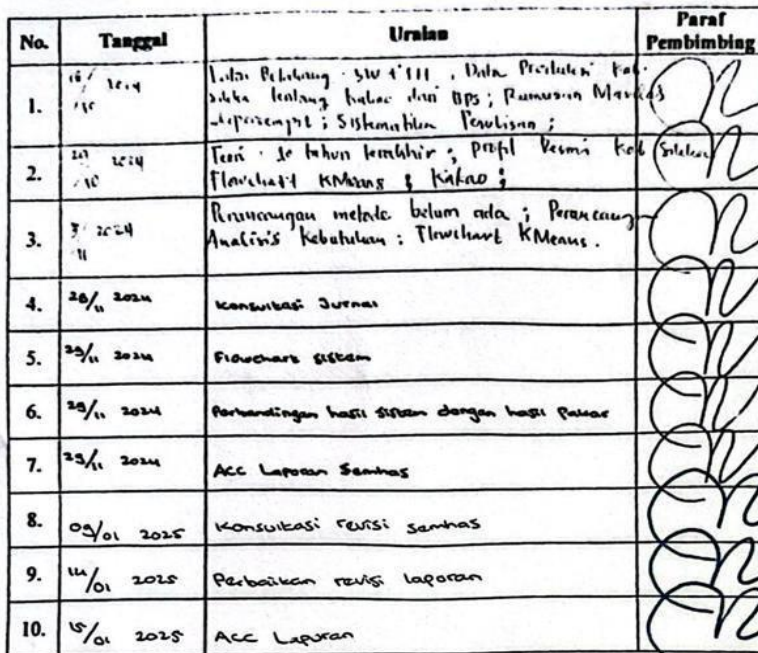 No. Tanggal Uraian Paraf Pembimbing
1. 2024 Latar Belakang 5W + 1H, Data Produksi Kab.
tentang kakao dari BPS; Rumusan
; Sistematika Penulisan;
2. 2024 Teori 10 tahun terakhir; profil Resmi Kab
10 Flowchart KMeans ; Kakao;
3. 2024 Perancangan metode belum ada; Perancang
11 Analisis Kebutuhan; Flowchart KMeans.
4. 28/11 2024 Konsultasi Jurnal
5. 29/11 2024 Flowchart sistem
6. 29/11 2024 Perbandingan hasil sistem dengan hasil Pakar
7. 29/11 2024 ACC Laporan Semhas
8. 09/01 2025 Konsultasi revisi semhas
9. 14/01 2025 Perbaikan revisi laporan
10. 15/01 2025 Acc Laporan